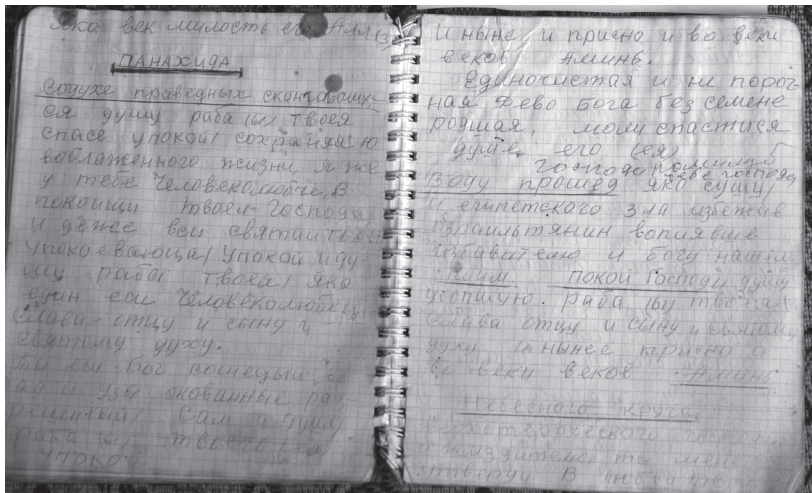 Яко век милость его Алл
ПАНАХИДА
Содухе праведных скончавших
ся душу раба (ы) твоея
спасе упокой/ сохраняя ю
воблаженного жизни, я же
у тебе Человеколюбче, в
покоищи твоем Господи
и деже вси святаи твои
упокоеваюца/ упокой и ду-
шу рабы твоея/ яко
един еси Человеколюбец
Слава отцу и сыну и
святому духу.
Ты еси бог сошедый во
ад и узы окованные раз
решивый/ Сам и душу
раба (ы) твоего
упокой
И ныне и присно и во веки
веков Аминь.
Единочистая и не пороч
ная Дево Бога без семене
родшая, моли спастися
душе его (ея)
Господи помилуй
тебе господи
Воду прошед яко сушу/
и египетского зла избежав
Израильтянин вопияше
избавителю и богу нашему
поим покой Господи душу
усопшую. раба (ы) твоея/
слава отцу и сыну и святому
духу. И нынее присно и
во веки веков Аминь
Небесного круга
верхотворческого
и
утверди в любви твоей